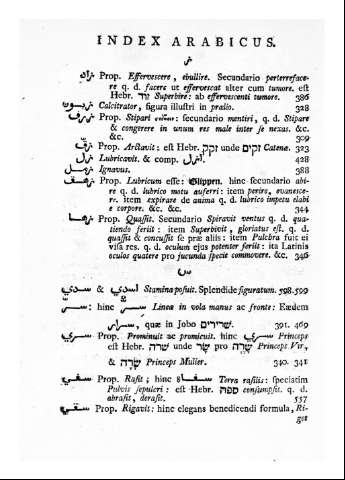 INDEX ARABICUS.
ز
Prop. Effervescere, ebullire. Secundario perterreface-
re q. d. facere ut effervescat alter cum tumore. est
Hebr. Superbire: ab effervescenti tumore. 386
Calcitrator, figura illustri in prælio. 328
Prop. Stipari secundario mentiri, q. d. Stipare
& congerere in unum res male inter se nexas. &c.
&c. 309
Prop. Arctavit: est Hebr. זקק unde זקים Catenæ. 323
Lubricavit. & comp. 428
Ignavus. 388
Prop. Lubricum esse: Glippen. hinc secundario abi-
re q. d. lubrico motu auferri: item perire, evanesce-
re. item expirare de anima q. d. lubrico impetu elabi
e corpore. &c. &c. 344
Prop. Quassit. Secundario Spiravit ventus q. d. qua-
tiendo feriit: item Superbivit, gloriatus est, q. d.
quassit & concussit se præ aliis: item Pulchra fuit et
visa res. q. d. oculum ejus potenter feriit: ita Latinis
oculos quatere pro jucunda specie commovere. &c. 346
س
سدي & اسدي Stamina posuit. Splendide figuratum. 598.599
hinc Linea in vola manus ac fronte: Eædem
quæ in Jobo שרירים. 391. 469
Prop. Prominuit ac promicuit. hinc سري Princeps
est Hebr. שרה unde שר pro שרה Princeps Vir,
& שרה Princeps Mulier. 340. 341
Prop. Rasit; hinc Terra rasilis: speciatim
Pulvis sepulcri: est Hebr. ספה consumpsit. q. d.
abrasit, derasit. 557
سقي Prop. Rigavit: hinc elegans benedicendi formula, Ri-
get